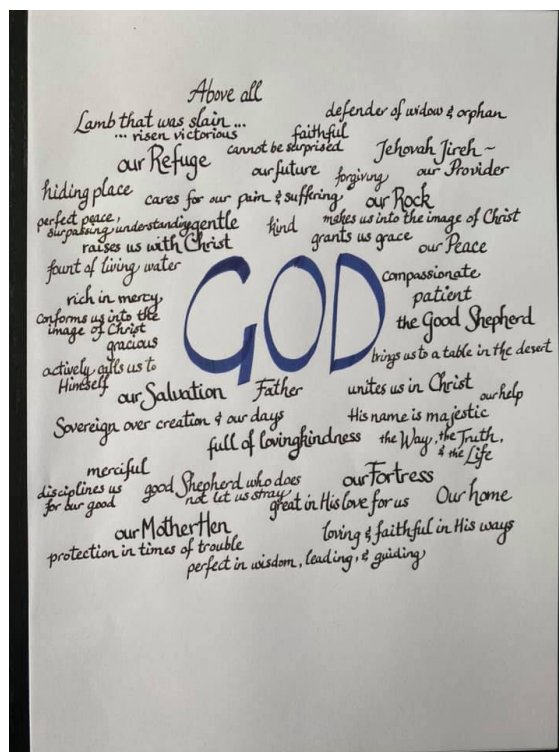 Above all
Lamb that was slain ...
... risen victorious
defender of widow & orphan
faithful
cannot be surprised
Jehovah Jireh ~
our Provider
our Refuge
our future
forgiving
hiding place
cares for our pain & suffering
our Rock
perfect peace,
surpassing understanding
gentle
kind
makes us into the image of Christ
raises us with Christ
grants us grace
our Peace
fount of living water
GOD
compassionate
rich in mercy
patient
conforms us into the
image of Christ
the Good Shepherd
gracious
brings us to a table in the desert
actively calls us to
Himself
our Salvation
Father
unites us in Christ
our help
Sovereign over creation & our days
His name is majestic
full of lovingkindness
the Way, the Truth,
& the Life
merciful
our Fortress
disciplines us
for our good
good Shepherd who does
not let us stray
great in His love for us
Our home
our Mother Hen
loving & faithful in His ways
protection in times of trouble
perfect in wisdom, leading, & guiding